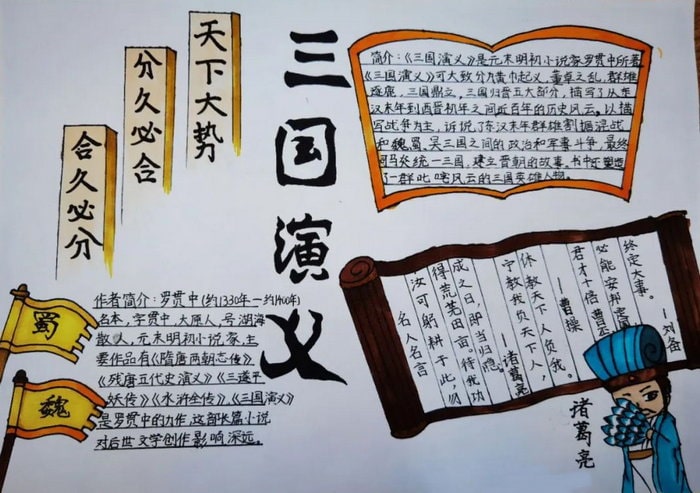 三国演义
天下大势
分久必合
合久必分
简介:《三国演义》是元末明初小说家罗贯中所著
《三国演义》可大致分为黄巾起义、董卓之乱、群雄
逐鹿、三国鼎立、三国归晋五大部分,描写了从东
汉末年到西晋初年之间近百年的历史风云。以描
写战争为主,诉说了东汉末年群雄割据混战
和魏、蜀、吴三国之间的政治和军事斗争,最终
司马炎统一三国,建立晋朝的故事。书中还塑造
了一群叱咤风云的三国英雄人物。
蜀
魏
作者简介:罗贯中(约1330年—约1400年)
名本,字贯中,太原人,号湖海
散人,元末明初小说家,主
要作品有《隋唐两朝志传》
《残唐五代史演义》《三遂平
妖传》《水浒全传》《三国演义》
是罗贯中的力作,这部长篇小说
对后世文学创作影响深远。
名人名言
汝可躬耕于此,勿
得荒芜田亩。待我功
成之日,即当归隐。
——诸葛亮
宁教我负天下人,
休教天下人负我。
——曹操
君才十倍曹
必能安邦定国
终定大事。
——刘备
诸葛亮